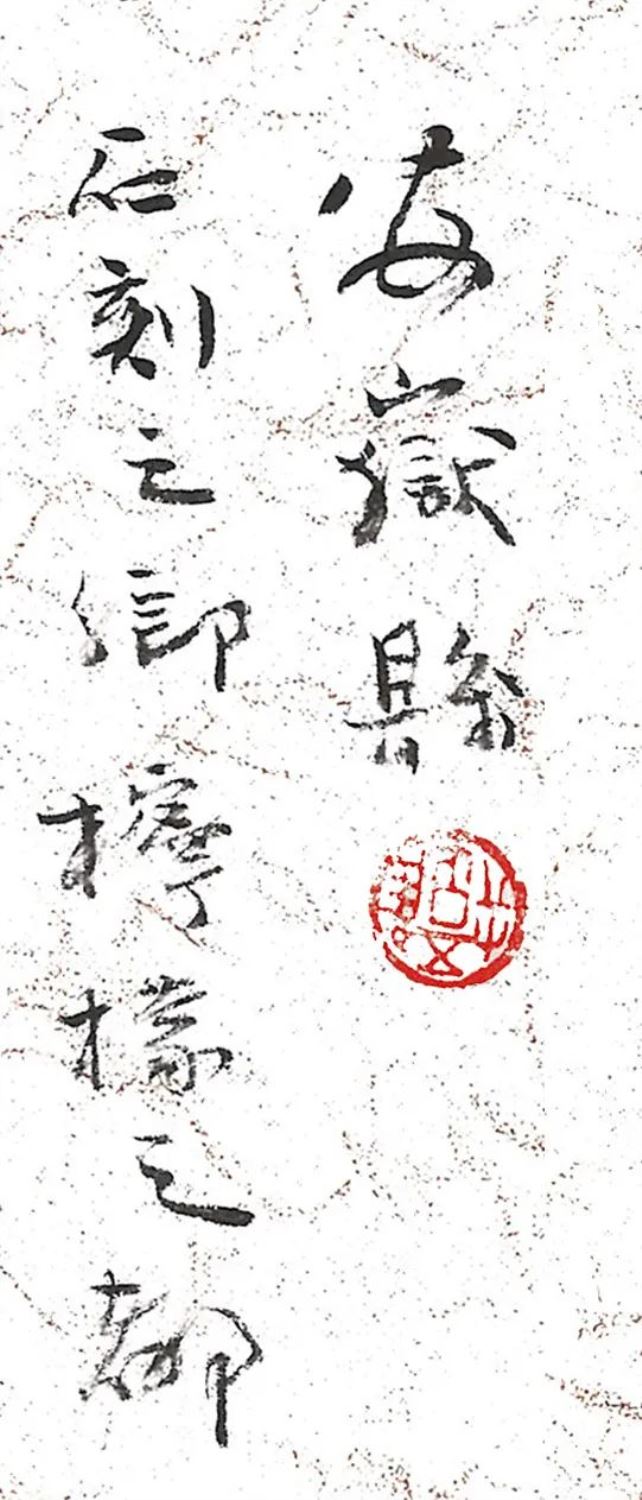 安嶽縣
石刻之鄉檸檬之都